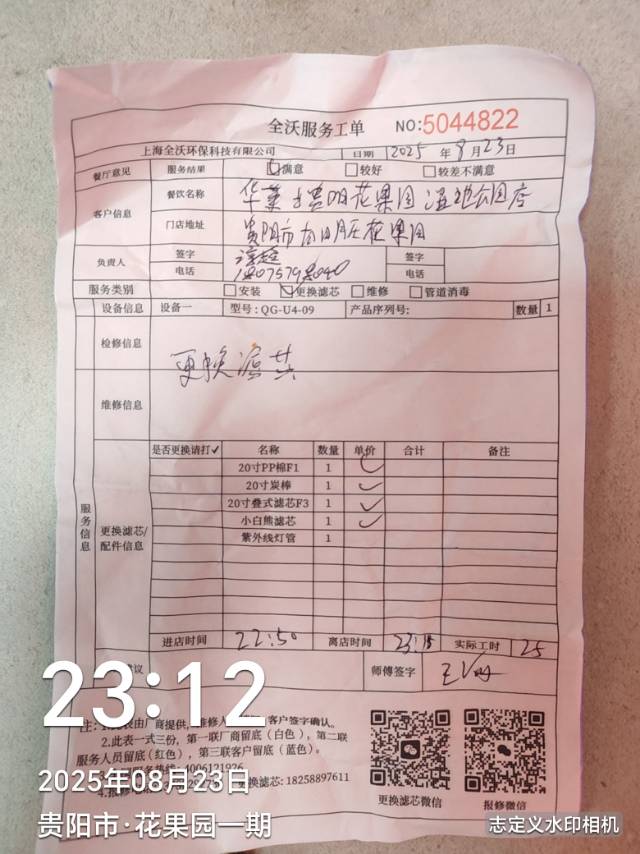 全沃服务工单 NO:5044822
上海全沃环保科技有限公司 日期 2025年8月23日
餐厅意见 服务结果 满意 较好 较差不满意
客户信息 餐饮名称 华莱士贵阳花果园湿地公园店
门店地址 贵阳市南明区花果园
负责人 签字 签字
电话 电话
服务类别 安装 更换滤芯 维修 管道消毒
设备信息 设备一 型号:QG-U4-09 产品序列号: 数量 1
检修信息
更换滤芯
维修信息
服务信息
更换滤芯/配件信息
是否更换请打✓ 名称 数量 单价 合计 备注
20寸PP棉F1 1 ✓
20寸炭棒 1 ✓
20寸叠式滤芯F3 1 ✓
小白熊滤芯 1 ✓
紫外线灯管 1
进店时间 22:50 离店时间 23:15 实际工时 25
建议 师傅签字
23:12
注:1.此表由厂商提供,维修人 客户签字确认。
2.此表一式三份,第一联厂商留底(白色),第二联
服务人员留底(红色),第三联客户留底(蓝色)。
服务热线:4006121926
换滤芯:18258897611
更换滤芯微信 报修微信
2025年08月23日
贵阳市·花果园一期
志定义水印相机